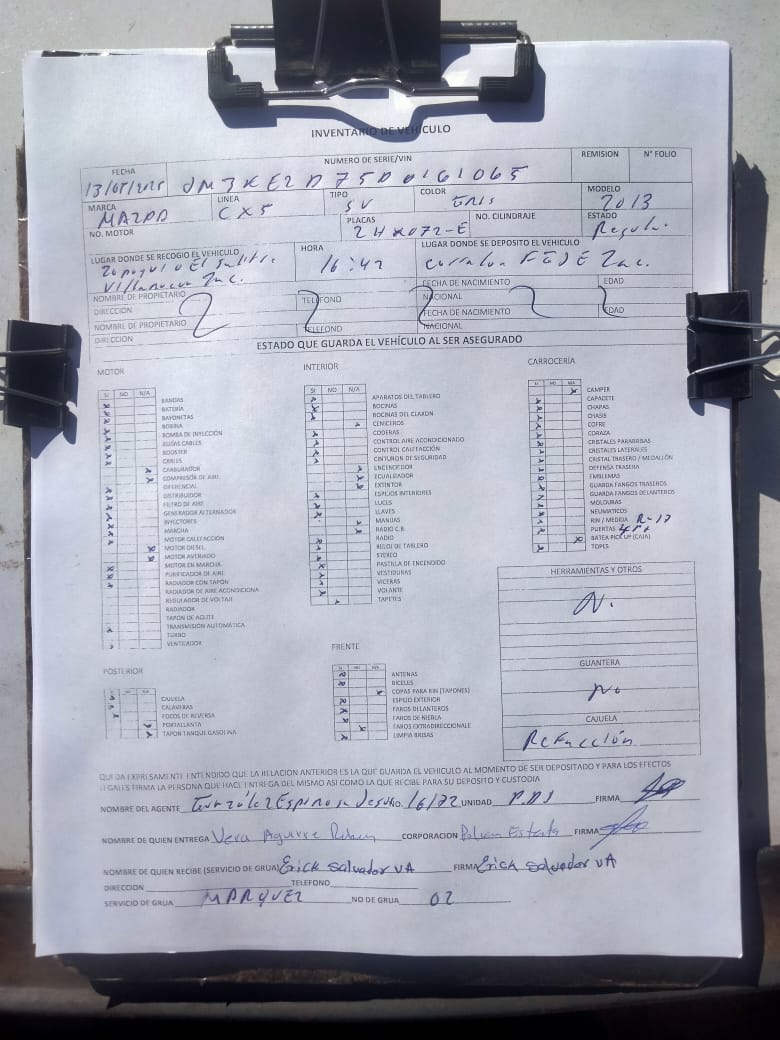 INVENTARIO DE VEHICULO
FECHA NUMERO DE SERIE/VIN REMISION N° FOLIO
JM3KE2D75D0161065
MARCA LINEA TIPO COLOR MODELO
MAZDA CX5 SV GRIS 2013
NO. MOTOR PLACAS NO. CILINDRAJE ESTADO
ZHX072-E Regular
LUGAR DONDE SE RECOGIO EL VEHICULO HORA LUGAR DONDE SE DEPOSITO EL VEHICULO
16:42 Corralon FGJE Zac.
Villanueva Zac.
NOMBRE DE PROPIETARIO TELEFONO FECHA DE NACIMIENTO EDAD
DIRECCION NACIONAL
NOMBRE DE PROPIETARIO TELEFONO FECHA DE NACIMIENTO EDAD
DIRECCION NACIONAL
ESTADO QUE GUARDA EL VEHÍCULO AL SER ASEGURADO
MOTOR
SI NO N/A
BANDAS
BATERÍA
BAYONETAS
BOBINA
BOMBA DE INYECCIÓN
BUJIAS CABLES
BOOSTER
CABLES
CARBURADOR
COMPRESOR DE AIRE
DIFERENCIAL
DISTRIBUIDOR
FILTRO DE AIRE
GENERADOR ALTERNADOR
INYECTORES
MARCHA
MOTOR CALEFACCIÓN
MOTOR DIESEL
MOTOR AVERIADO
MOTOR EN MARCHA
PURIFICADOR DE AIRE
RADIADOR CON TAPÓN
RADIADOR DE AIRE ACONDICIONA
REGULADOR DE VOLTAJE
RADIADOR
TAPON DE ACEITE
TRANSMISIÓN AUTOMÁTICA
TURBO
VENTILADOR
INTERIOR
SI NO N/A
APARATOS DEL TABLERO
BOCINAS
BOCINAS DEL CLAXON
CENICEROS
CODERAS
CONTROL AIRE ACONDICIONADO
CONTROL CALEFACCIÓN
CINTURON DE SEGURIDAD
ENCENDEDOR
ECUALIZADOR
EXTINTOR
ESPEJOS INTERIORES
LUCES
LLAVES
MANIJAS
RADIO C.B.
RADIO
RELOJ DE TABLERO
STEREO
PASTILLA DE ENCENDIDO
VESTIDURAS
VICERAS
VOLANTE
TAPETES
CARROCERÍA
SI NO N/A
CAMPER
CAPACETE
CHAPAS
CHASIS
COFRE
CORAZA
CRISTALES PARABRISAS
CRISTALES LATERALES
CRISTAL TRASERO / MEDALLÓN
DEFENSA TRASERA
EMBLEMAS
GUARDA FANGOS TRASEROS
GUARDA FANGOS DELANTEROS
MOLDURAS
NEUMATICOS
RIN / MEDIDA R-17
PUERTAS
BATEA PICK UP (CAJA)
TOPES
HERRAMIENTAS Y OTROS
N.
GUANTERA
No
CAJUELA
Refacción
POSTERIOR
SI NO N/A
CAJUELA
CALAVERAS
FOCOS DE REVERSA
PORTALLANTA
TAPON TANQUE GASOLINA
FRENTE
SI NO N/A
ANTENAS
BICELES
COPAS PARA RIN (TAPONES)
ESPEJO EXTERIOR
FAROS DELANTEROS
FAROS DE NIEBLA
FAROS EXTRADIRECCIONALE
LIMPIA BRISAS
QUEDA EXPRESAMENTE ENTENDIDO QUE LA RELACION ANTERIOR ES LA QUE GUARDA EL VEHICULO AL MOMENTO DE SER DEPOSITADO Y PARA LOS EFECTOS
LEGALES FIRMA LA PERSONA QUE HACE ENTREGA DEL MISMO ASÍ COMO LA QUE RECIBE PARA SU DEPOSITO Y CUSTODIA
NOMBRE DEL AGENTE González Espinosa Jesus NO. UNIDAD FIRMA
NOMBRE DE QUIEN ENTREGA Vera Aguirre Ruben CORPORACION Policia Estatal FIRMA
NOMBRE DE QUIEN RECIBE (SERVICIO DE GRUA) Erick Salvador VA FIRMA Erick Salvador VA
DIRECCION TELEFONO
SERVICIO DE GRUA MARQUEZ NO DE GRUA 02